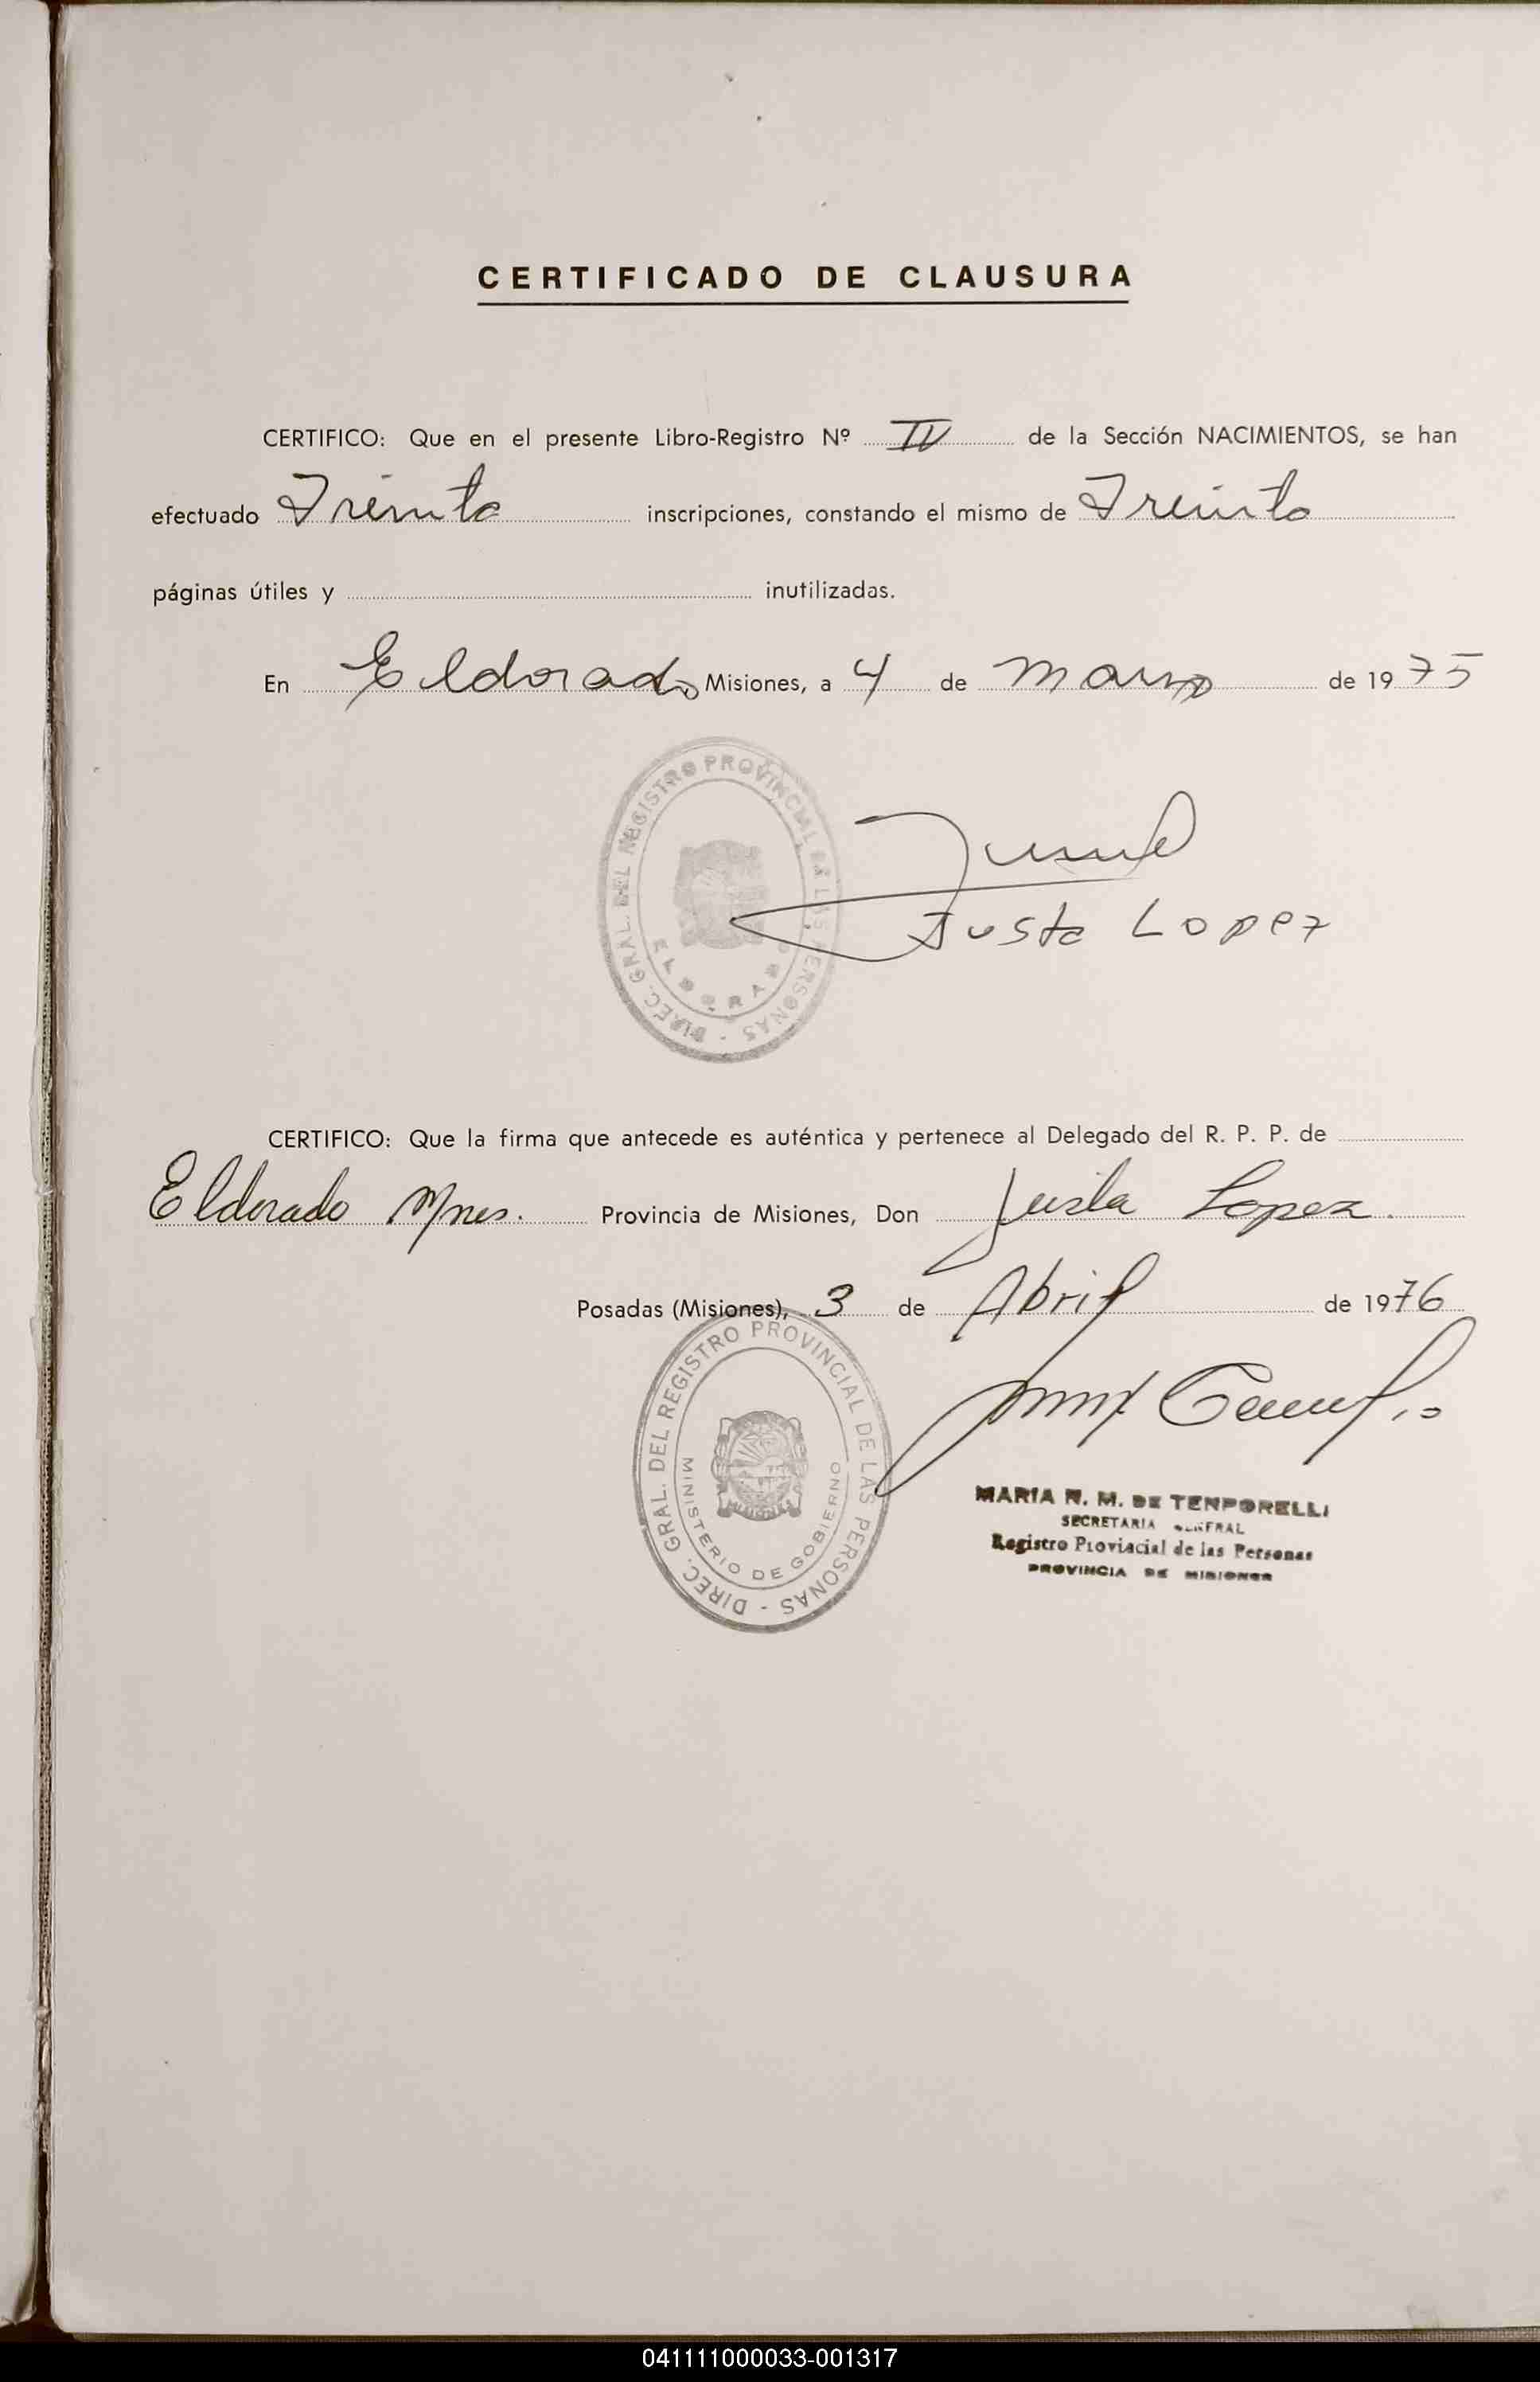 CERTIFICADO DE CLAUSURA
CERTIFICO: Que en el presente Libro-Registro Nº IV de la Sección NACIMIENTOS, se han
efectuado Treinta inscripciones, constando el mismo de Treinta
páginas útiles y inutilizadas.
En Eldorado, Misiones, a 4 de Marzo de 1975
DIREC. GRAL. DEL REGISTRO PROVINCIAL DE LAS PERSONAS
ELDORADO
Justa Lopez
CERTIFICO: Que la firma que antecede es auténtica y pertenece al Delegado del R. P. P. de
Eldorado Mnes. Provincia de Misiones, Don Justa Lopez.
Posadas (Misiones), 3 de Abril de 1976
DIREC. GRAL. DEL REGISTRO PROVINCIAL DE LAS PERSONAS
MINISTERIO DE GOBIERNO
MARIA N. M. DE TENPORELLI
SECRETARIA GENERAL
Registro Provincial de las Personas
PROVINCIA DE MISIONES
041111000033-001317